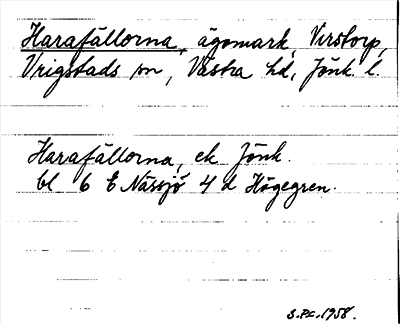 Harafällorna, ägomark, Virstorp,
Vrigstads sn, Västra hd, Jönk. l.
Harafällorna, ek Jönk.
bl 6 E Nässjö 4 d Högegren.
S.Pl. 1958.